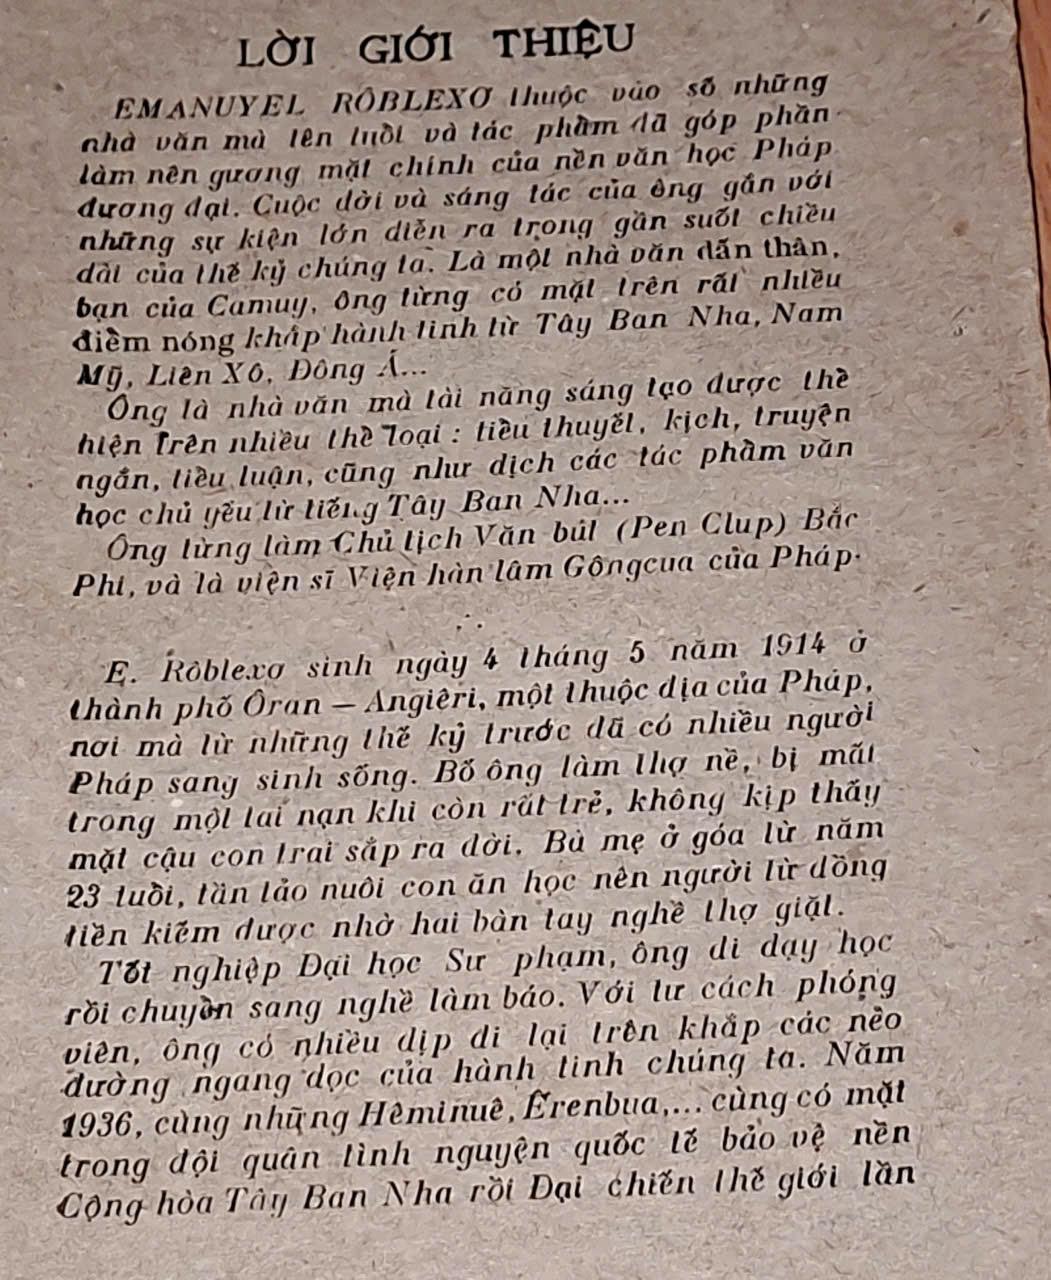 LỜI GIỚI THIỆU
EMANUYEL RÔBLEXƠ thuộc vào số những
nhà văn mà tên tuổi và tác phẩm đã góp phần
làm nên gương mặt chính của nền văn học Pháp
đương đại. Cuộc đời và sáng tác của ông gắn với
những sự kiện lớn diễn ra trong gần suốt chiều
dài của thế kỷ chúng ta. Là một nhà văn dấn thân,
bạn của Camuy, ông từng có mặt trên rất nhiều
điểm nóng khắp hành tinh từ Tây Ban Nha, Nam
Mỹ, Liên Xô, Đông Á...
Ông là nhà văn mà tài năng sáng tạo được thể
hiện trên nhiều thể loại : tiểu thuyết, kịch, truyện
ngắn, tiểu luận, cũng như dịch các tác phẩm văn
học chủ yếu từ tiếng Tây Ban Nha...
Ông từng làm Chủ tịch Văn bút (Pen Clup) Bắc
Phi, và là viện sĩ Viện hàn lâm Gôngcua của Pháp.
E. Rôblexơ sinh ngày 4 tháng 5 năm 1914 ở
thành phố Ôran — Angiêri, một thuộc địa của Pháp,
nơi mà từ những thế kỷ trước đã có nhiều người
Pháp sang sinh sống. Bố ông làm thợ nề, bị mất
trong một tai nạn khi còn rất trẻ, không kịp thấy
mặt cậu con trai sắp ra đời. Bà mẹ ở góa từ năm
23 tuổi, tần tảo nuôi con ăn học nên người từ đồng
tiền kiếm được nhờ hai bàn tay nghề thợ giặt.
Tốt nghiệp Đại học Sư phạm, ông đi dạy học
rồi chuyển sang nghề làm báo. Với tư cách phóng
viên, ông có nhiều dịp đi lại trên khắp các nẻo
đường ngang dọc của hành tinh chúng ta. Năm
1936, cùng những Hêminuê, Êrenbua,... cùng có mặt
trong đội quân tình nguyện quốc tế bảo vệ nền
Cộng hòa Tây Ban Nha rồi Đại chiến thế giới lần